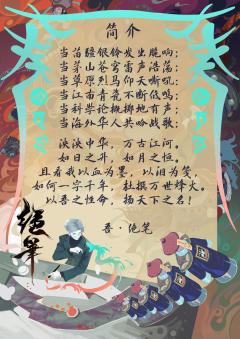 简介
当苗疆银铃发生脆响；
当茅山苍穹雷声浩荡；
当草原烈马仰天嘶吼；
当江南青瓷不断低鸣；
当科学论概掷地有声；
当海外华人共吟战歌；
泱泱中华，万古江河。
如日之升，如月之恒。
且看我以血为墨，以泪为笺，
如何一字千年，杜撰万世烽火。
以吾之性命，扬天下之名！
吾·绝笔
绝笔